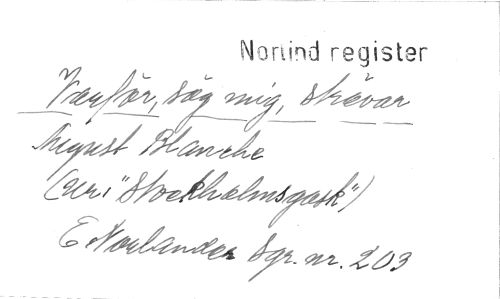 Norlind register
Varför, säg mig, strävar
August Blanche
(Ur "Stockholmsgask")
E. Norlander Sgr. nr. 203